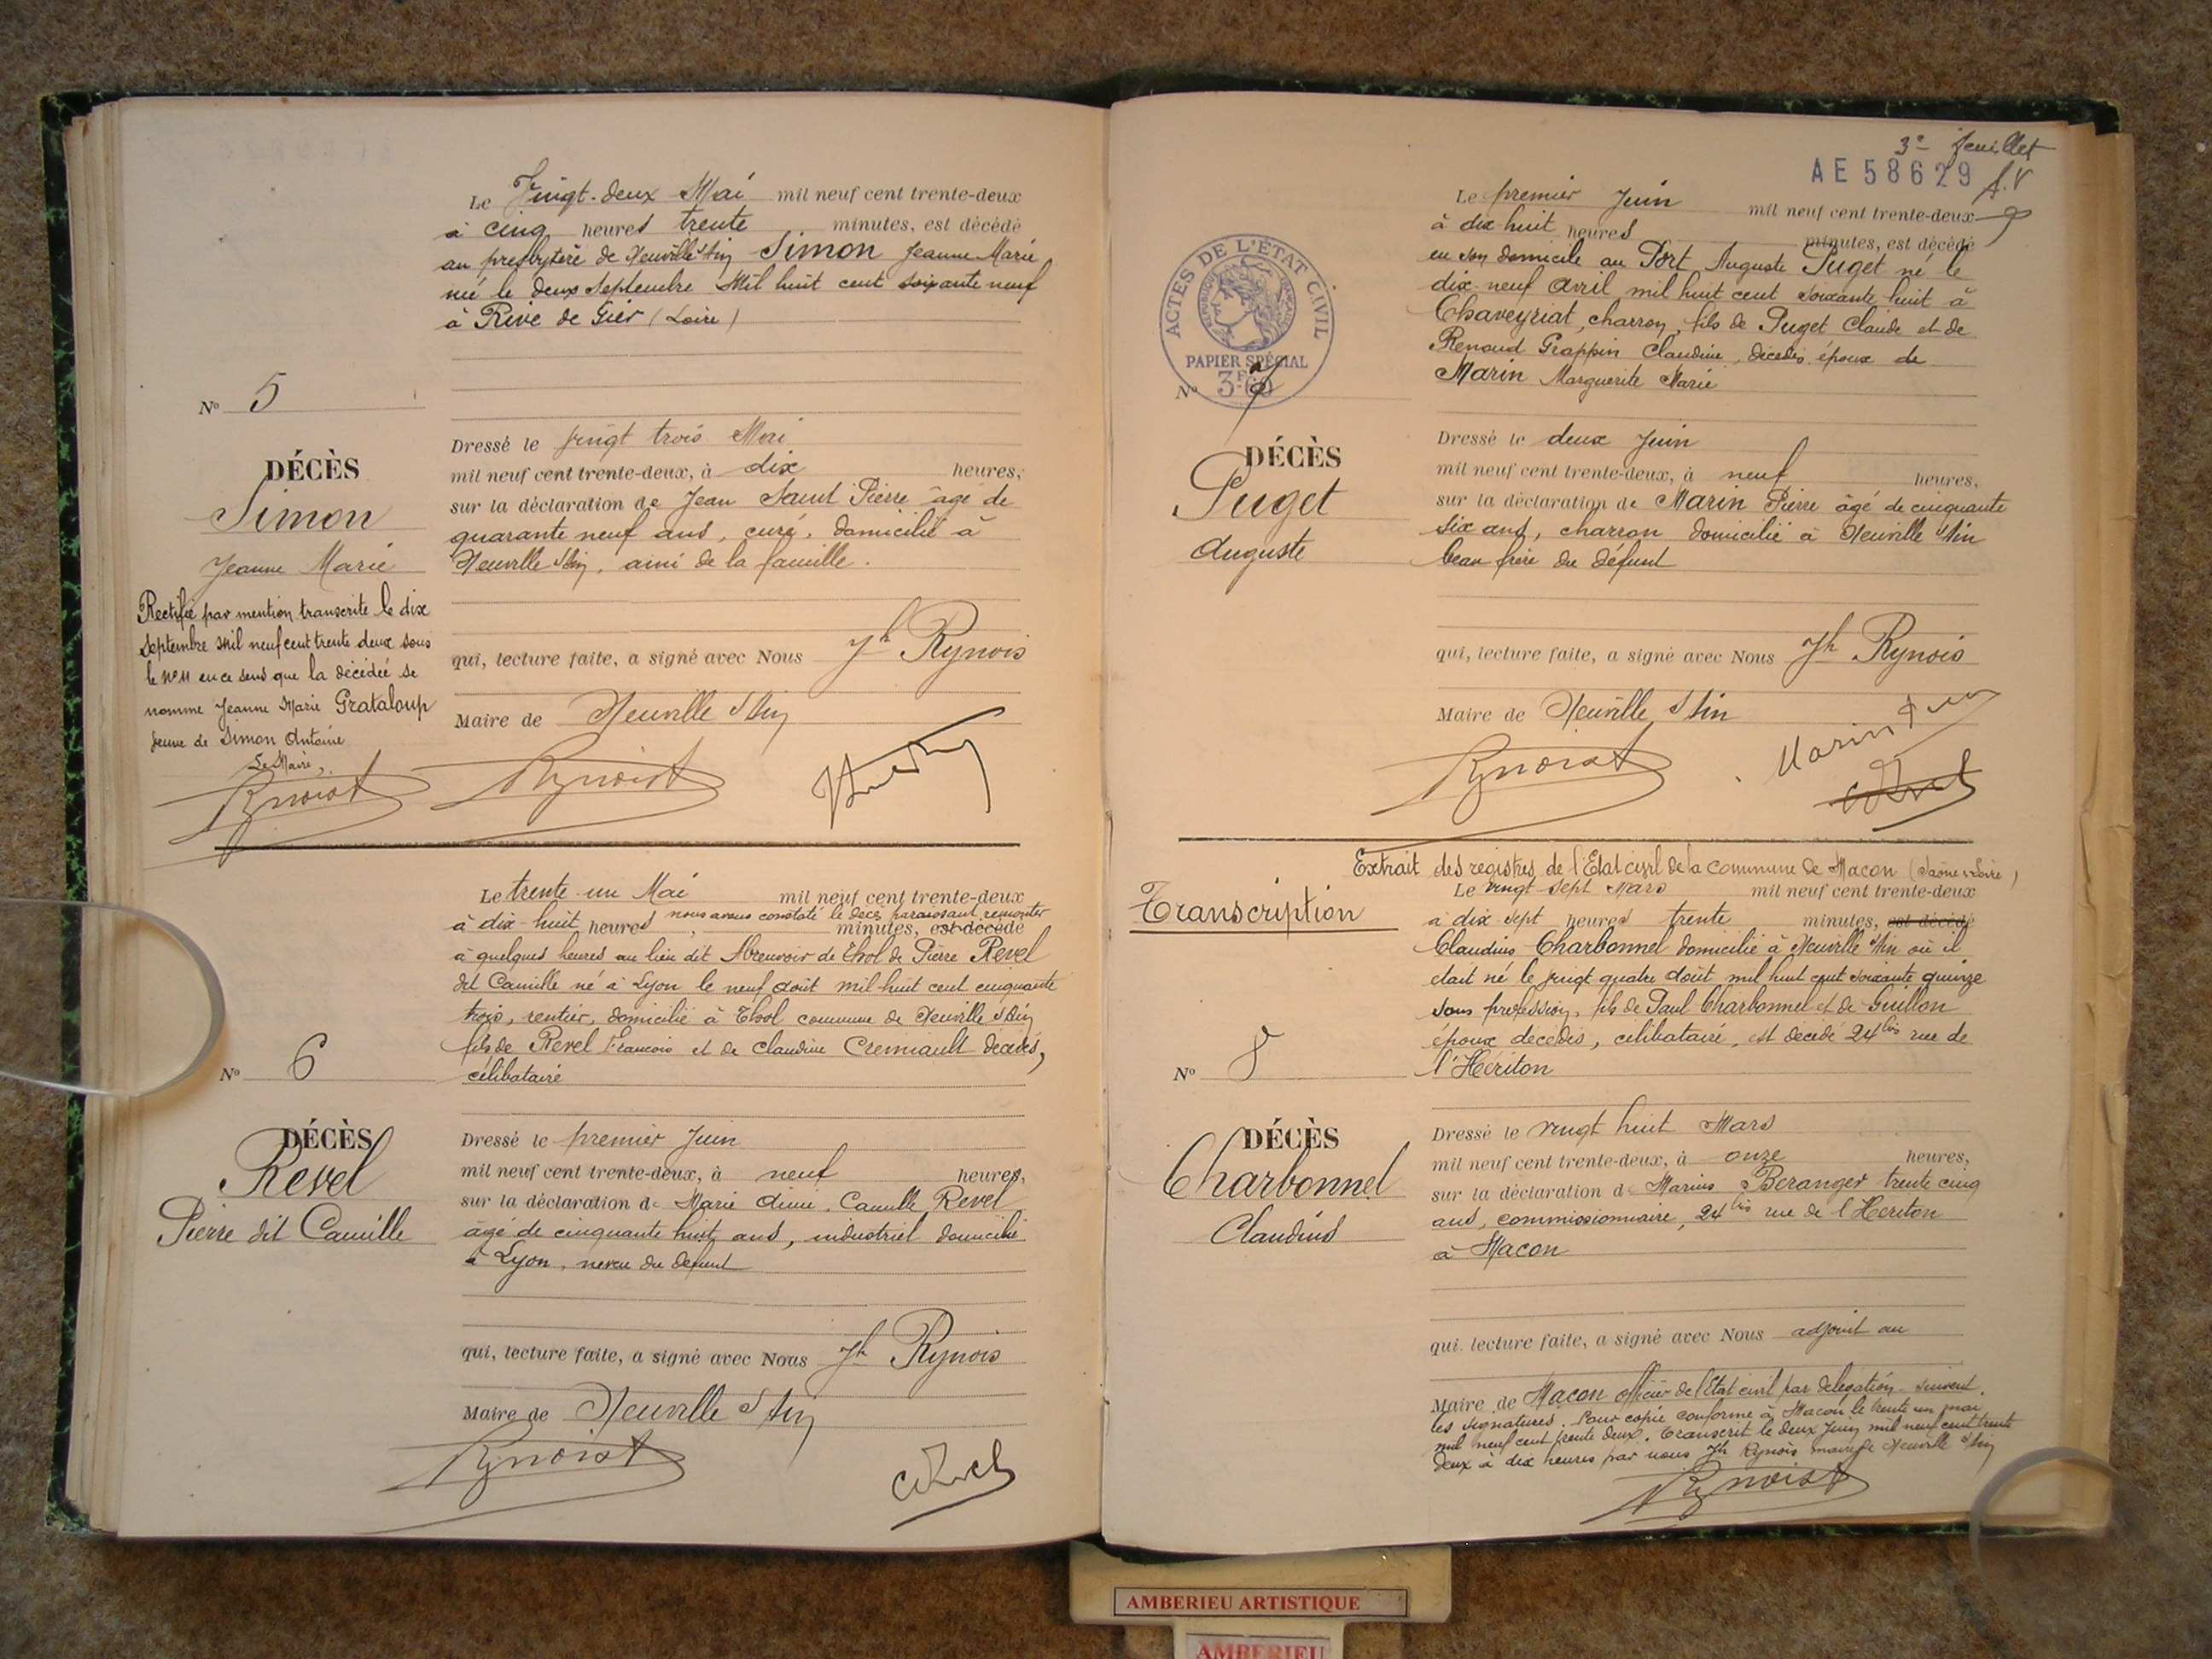 Le Vingt-deux Mai mil neuf cent trente-deux
à cinq heures trente minutes, est décédé
au presbytère de Neuville s/Ain Simon Jeanne Marie
née le deux Septembre Mil huit cent soixante neuf
à Rive de Gier (Loire)
N° 5
DÉCÈS
Simon
Jeanne Marie
Rectifié par mention transcrite le dix
Septembre mil neuf cent trente deux sous
le N° 11 en ce sens que la décédée se
nomme Jeanne Marie Grataloup
veuve de Simon Antoine
Le Maire,
Rynois
Dressé le vingt trois Mai
mil neuf cent trente-deux, à dix heures,
sur la déclaration de Jean Saint Pierre âgé de
quarante neuf ans, curé, domicilié à
Neuville s/Ain, ami de la famille.
qui, lecture faite, a signé avec Nous Jh Rynois
Maire de Neuville s/Ain
Rynois
Le trente-un Mai mil neuf cent trente-deux
à dix-huit heures nous avons constaté le décès paraissant remonter
minutes, est décédé
à quelques heures au lieu dit Abreuvoir de Thol de Pierre Revel
dit Camille né à Lyon le neuf août mil-huit cent cinquante
trois, rentier, domicilié à Thol commune de Neuville s/Ain
fils de Revel François et de Claudine Cremault décédés,
célibataire
N° 6
DÉCÈS
Revel
Pierre dit Camille
Dressé le premier Juin
mil neuf cent trente-deux, à neuf heures,
sur la déclaration de Marie Camille Revel
âgé de cinquante huit ans, industriel domicilié
à Lyon, neveu du défunt
qui, lecture faite, a signé avec Nous Jh Rynois
Maire de Neuville s/Ain
Rynois
3e feuillet
AE 58629
Le premier Juin mil neuf cent trente-deux
à dix huit heures minutes, est décédé
en son domicile au Port Auguste Puget né le
dix-neuf Avril mil huit cent soixante huit à
Chaveyriat, charron, fils de Puget Claude et de
Renoud Grappin Claudine, décédés, époux de
Marin Marguerite Marie
ACTES DE L'ÉTAT CIVIL
RÉPUBLIQUE FRANÇAISE
PAPIER SPÉCIAL
3F.60
N° 7
DÉCÈS
Puget
Auguste
Dressé le deux Juin
mil neuf cent trente-deux, à neuf heures,
sur la déclaration de Marin Pierre âgé de cinquante
six ans, charron domicilié à Neuville s/Ain
beau frère du défunt
qui, lecture faite, a signé avec Nous Jh Rynois
Maire de Neuville s/Ain
Rynois
Marin
Extrait des registres de l'Etat civil de la commune de Macon (Saône & Loire)
Transcription
Le vingt sept Mars mil neuf cent trente-deux
à dix-sept heures trente minutes, est décédé
Claudius Charbonnel domicilié à Neuville s/Ain où il
était né le vingt quatre août mil huit cent soixante quinze
sans profession, fils de Paul Charbonnel et de Guillon
époux décédés, célibataire, est décédé 24 bis rue de
l'Hériton
N° 8
DÉCÈS
Charbonnel
Claudius
Dressé le vingt huit Mars
mil neuf cent trente-deux, à onze heures,
sur la déclaration de Marius Beranger trente cinq
ans, commissionnaire, 24 bis rue de l'Heriton
à Macon
qui, lecture faite, a signé avec Nous adjoint au
Maire de Macon officier de l'Etat civil par délégation - suivent
les signatures. Pour copie conforme à Macon le trente un mai
mil neuf cent trente deux. Transcrit le deux Juin mil neuf cent trente
deux à dix heures par nous Jh Rynois maire de Neuville s/Ain
Rynois
AMBERIEU ARTISTIQUE
AMBERIEU